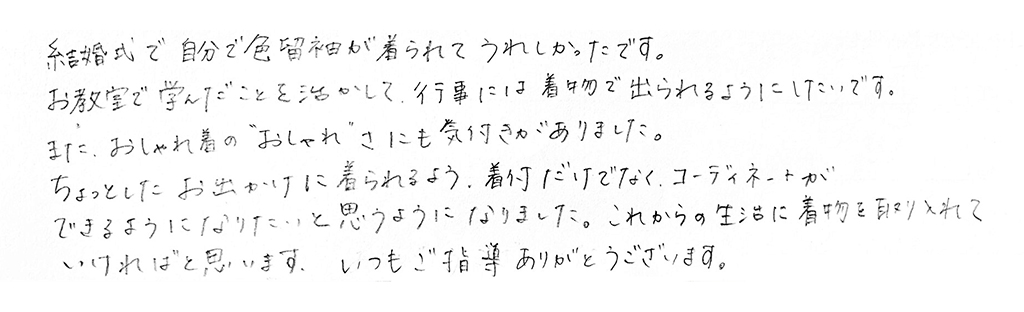 結婚式で自分で色留袖が着られてうれしかったです。
お教室で学んだことを活かして、行事には着物で出られるようにしたいです。
また、おしゃれ着の"おしゃれ"さにも気付きがありました。
ちょっとしたお出かけに着られるよう、着付だけでなく、コーディネートが
できるようになりたいと思うようになりました。これからの生活に着物を取り入れて
いければと思います。いつもご指導ありがとうございます。